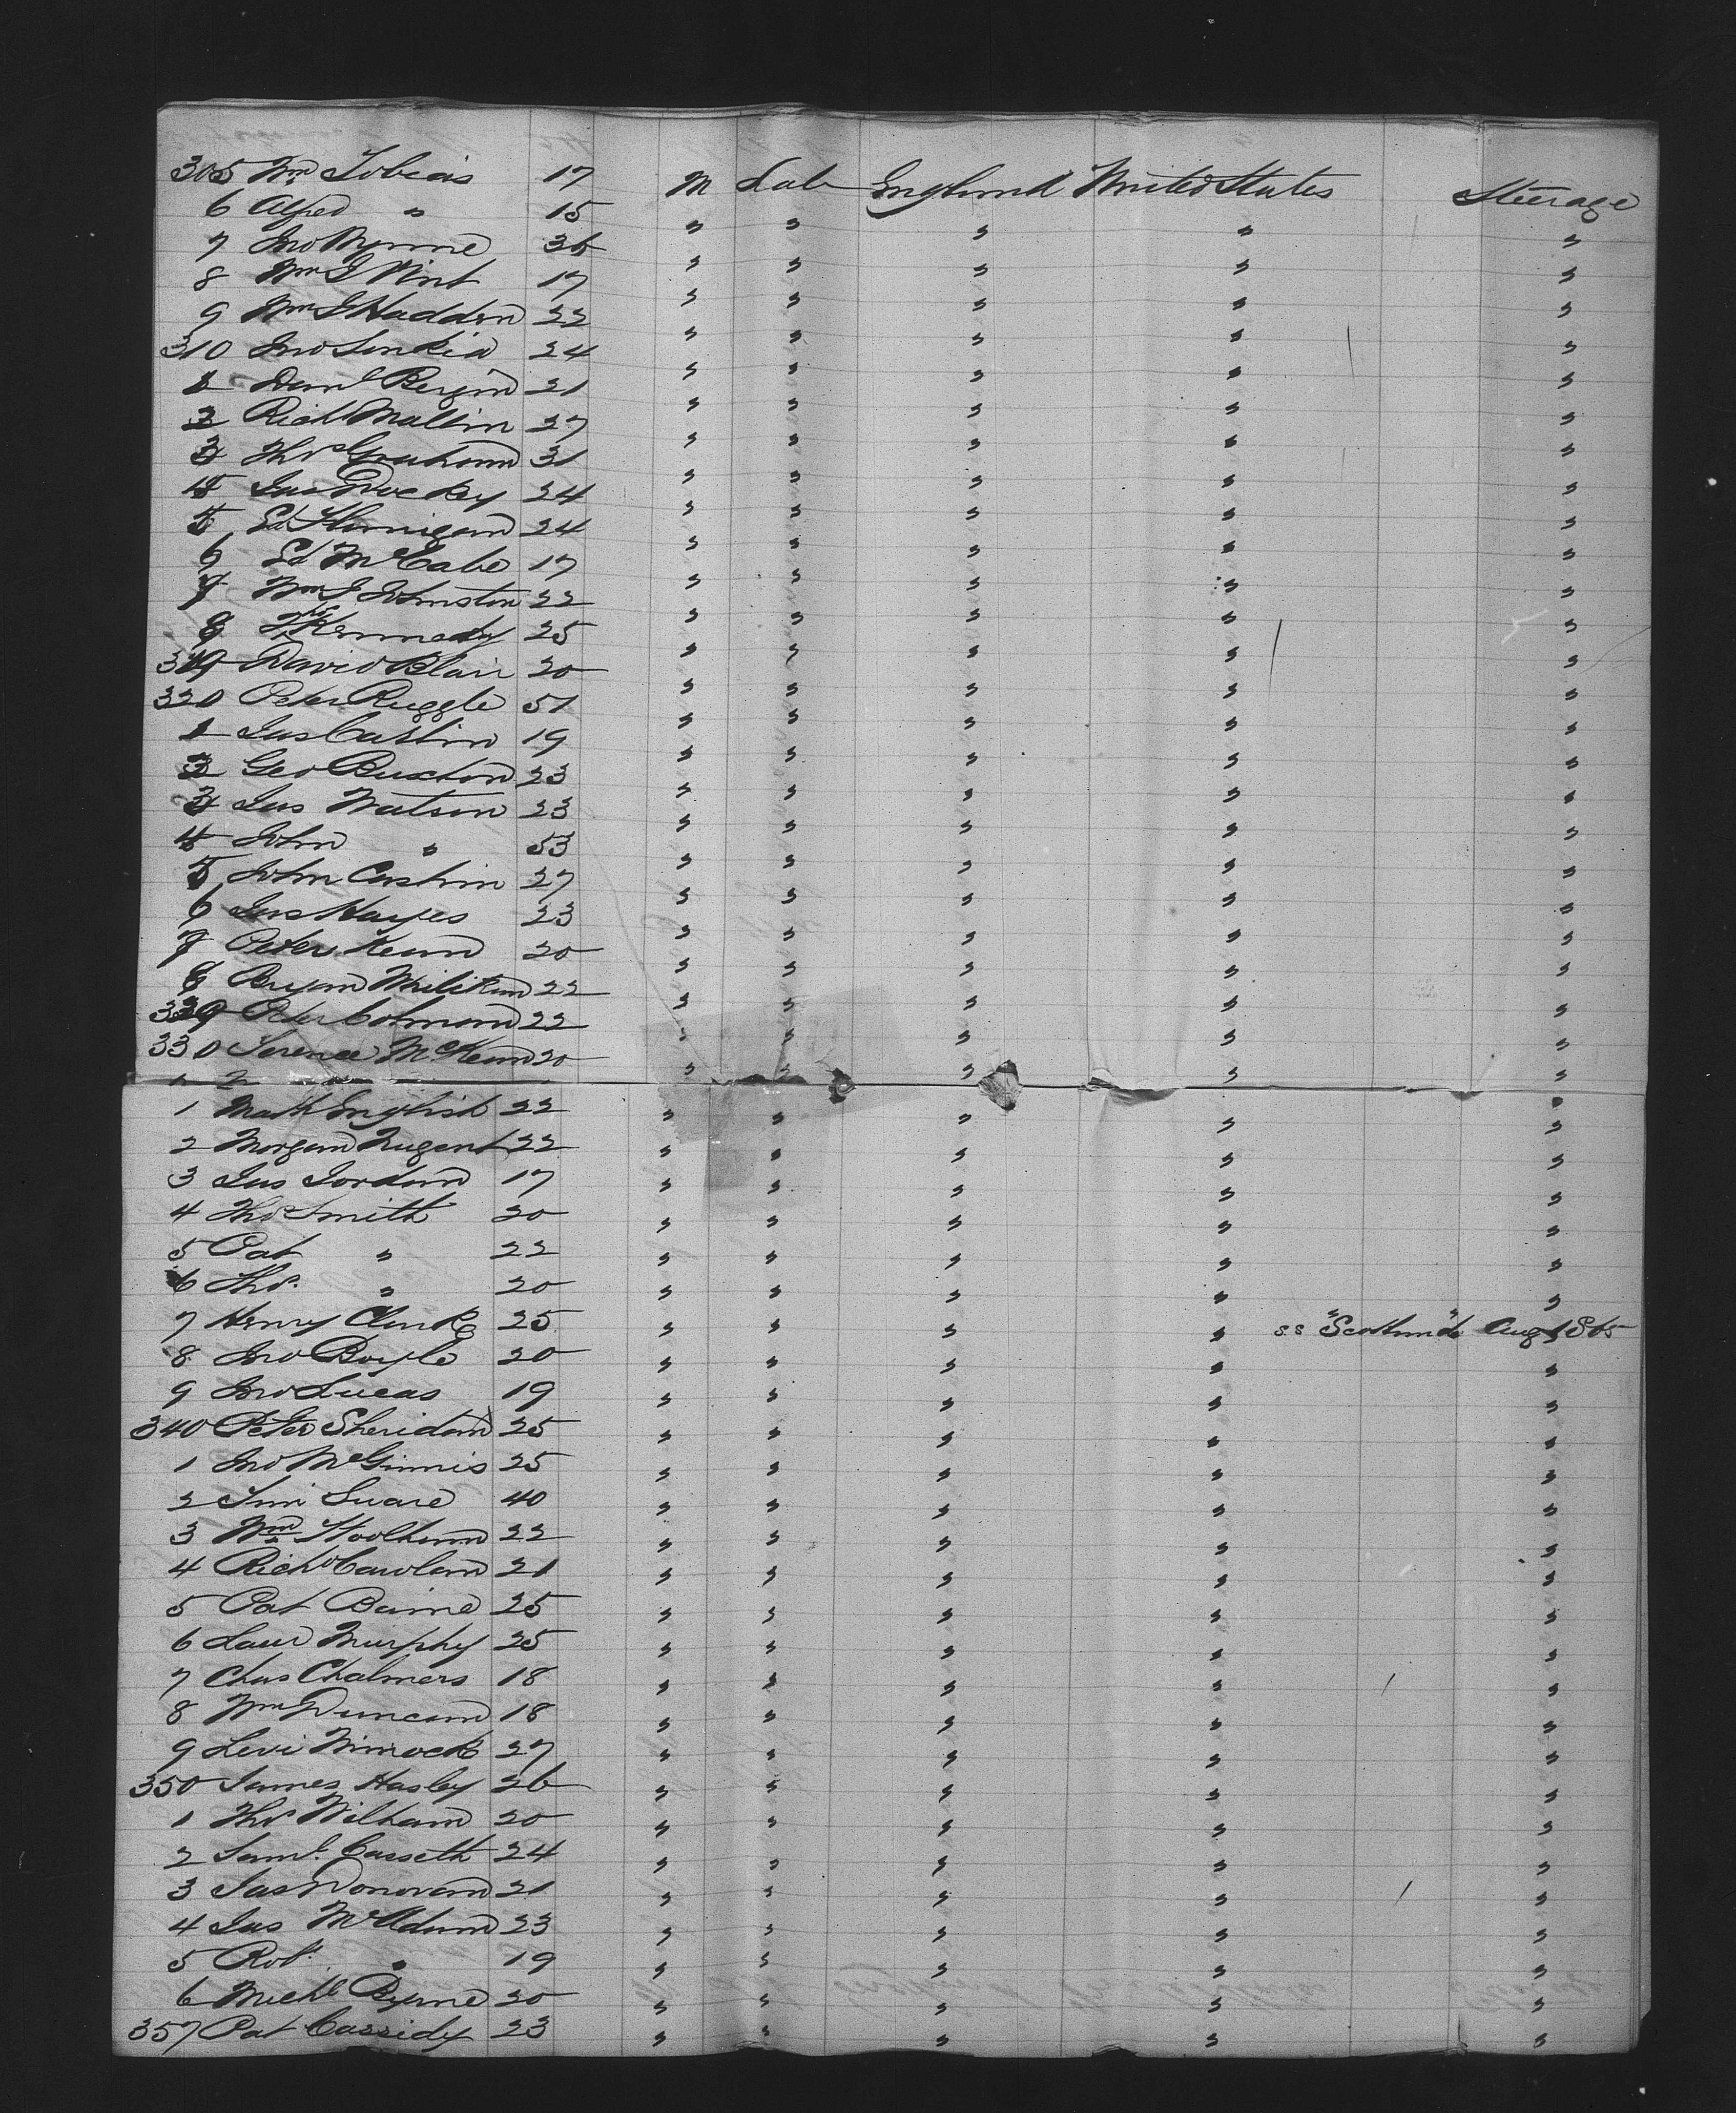 305 Wm Tobias 17 M Lab England United States Steerage
6 Alfred " 15 " " " " "
7 Jno Byrne 36 " " " " "
8 Wm J Vint 17 " " " " "
9 Wm J Hadden 22 " " " " "
310 Jno 24 " " " " "
1 Danl Bergin 21 " " " " "
2 Richd Mallin 27 " " " " "
3 Thos Graham 31 " " " " "
4 Jas 24 " " " " "
5 Ed 24 " " " " "
6 Ed McCabe 17 " " " " "
7 Wm J Johnston 22 " " " " "
8 Kennedy 25 " " " " "
319 David Blair 20 " " " " "
320 Peter Ruggle 51 " " " " "
1 Jas Carlin 19 " " " " "
2 Geo Buxton 23 " " " " "
3 Jas Watson 23 " " " " "
4 John " 53 " " " " "
5 John Cashin 27 " " " " "
6 Jas Hayes 23 " " " " "
7 Peter Keand 20 " " " " "
8 Bryan Milikan 22 " " " " "
329 Peter Colman 22 " " " " "
330 Terence McKeand 20 " " " " "
1 Math English 22 " " " " "
2 Morgan Nugent 22 " " " " "
3 Jas Jordan 17 " " " " "
4 Thos Smith 20 " " " " "
5 Pat " 22 " " " " "
6 Thos. " 20 " " " " "
7 Henry Clarke 25 " " " " ss "Scotland" Aug 1865
8 Jno Boyle 20 " " " " "
9 Jno Lucas 19 " " " " "
340 Peter Sheridan 25 " " " " "
1 Jno McGinnis 25 " " " " "
2 40 " " " " "
3 Wm 22 " " " " "
4 Richd Cawland 21 " " " " "
5 Pat Beirne 25 " " " " "
6 Laur Murphy 25 " " " " "
7 Chas Chalmers 18 " " " " "
8 Wm Duncan 18 " " " " "
9 Levi 27 " " " " "
350 James Hasley 26 " " " " "
1 Thos Wilham 20 " " " " "
2 Saml. Gasseth 24 " " " " "
3 Jas Donovan 21 " " " " "
4 Jas McAdam 23 " " " " "
5 Robt. " 19 " " " " "
6 Michl Byrne 20 " " " " "
357 Pat Cassidy 23 " " " " "